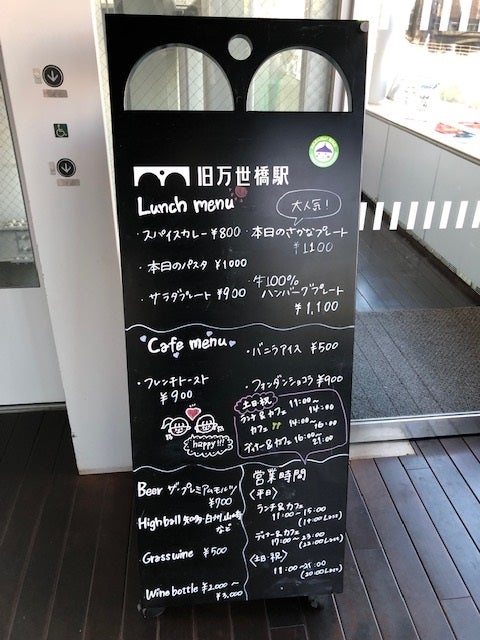 旧万世橋駅
Lunch menu
大人気!
・スパイスカレー ¥800
・本日のさかなプレート
¥1100
・本日のパスタ ¥1000
・牛100%
ハンバーグプレート
¥1,100
・サラダプレート ¥900
Cafe menu
・バニラアイス ¥500
・フレンチトースト
¥900
・フォンダンショコラ ¥900
happy!!!
土日・祝
ランチ&カフェ 11:00~
14:00
カフェ 14:00~
16:00
ディナー&カフェ 16:00~
21:00
Beer ザ・プレミアムモルツ
¥700
Highball 知多・白州・山崎
など
Grass wine ¥500
Wine bottle ¥2,000~
¥3,000
営業時間
〈平日〉
ランチ&カフェ
11:00~15:00
(14:00 L.o)
ディナー&カフェ
17:00~23:00
(22:00 L.o)
〈土日・祝〉
11:00~21:00
(20:00 L.o)